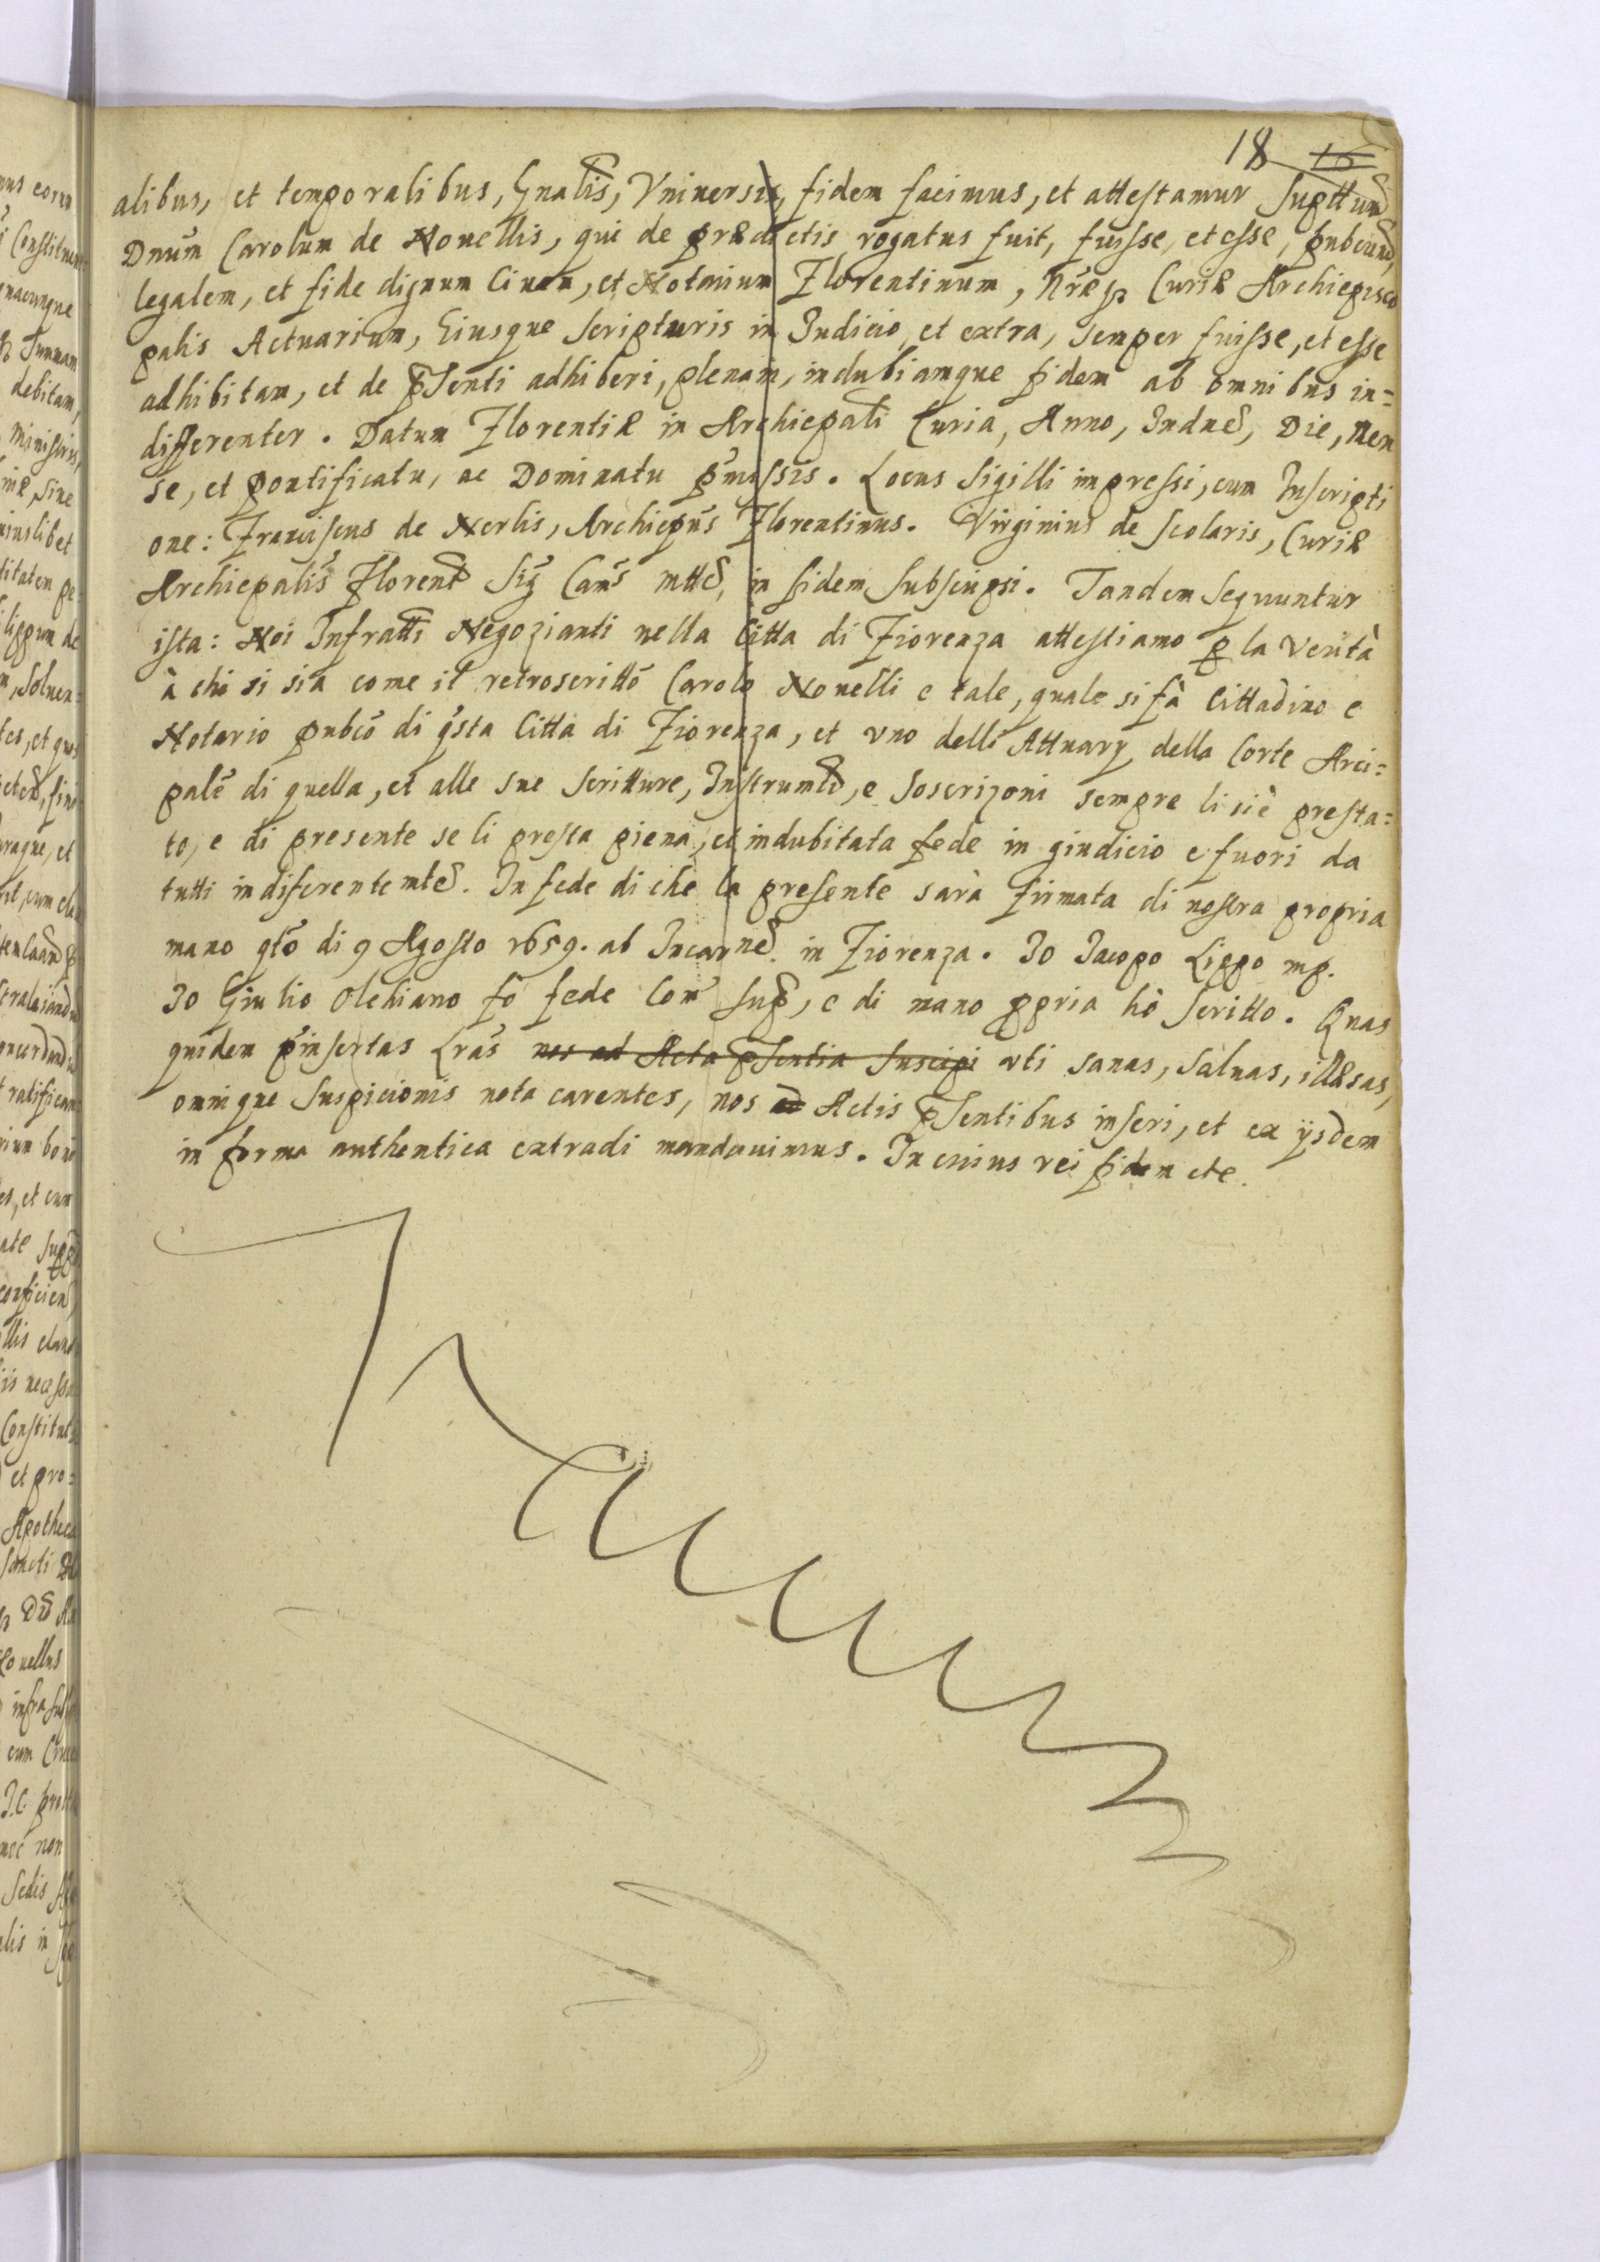 18 16
alibus, et temporalibus, Gnalis, Vniuersis, fidem facimus, et attestamur supttum
Dnum Carolum de Nouellis, qui de prædictis rogatus fuit, fuisse, et esse, pubcum,
legalem, et fide dignum Ciuem, et Notarium Florentinum, Nræq Curiæ Archiepisco
palis Actuarium, Eiusque Scripturis in Iudicio, et extra, semper fuisse, et esse
adhibitam, et de pSenti adhiberi, plenam, indubiamque fidem ab omnibus in=
differenter. Datum Florentiæ in Archiepali Curia, Anno, Indne, Die, Men
se, et pontificatu, ac Dominatu pmissis. Locus Sigilli impressi, cum Inscripti
one: Franciscus de Nerlis, Archiepus Florentinus. Virginius de Scolaris, Curiæ
Archiepalis Florent Sig Cans mtte, in fidem subscripsi. Tandem sequuntur
ista: Noi Infratti Negozianti nella Citta di Fiorenza attestiamo p la Verità
à chi si sia come il retroscritto Carolo Nouelli e tale, quale si fà Cittadino e
Notario pubco di qsta Citta di Fiorenza, et vno delli Attuary della Corte Arci=
pale di quella, et alle sue Scritture, Instrumti, e soscrizoni sempre li si è presta=
to, e di presente se li presta piena, et indubitata fede in giudicio e fuori da
tutti indiferentemte. In fede di che la presente sarà firmata di nostra propria
mano qto di 9 Agosto 1659. ab Incarne. in Fiorenza. Io Iacopo Lippo mp.
Io Giulio Olchiano fo fede Com sup, e di mano ppria hò scritto. Quas
quidem pinsertas Lras nos ad Acta pSentia suscipi vti sanas, saluas, illæsas,
omnique suspicionis nota carentes, nos ad Actis pSentibus inseri, et ex ysdem
in forma authentica extradi mandauimus. In cuius rei fidem etc.